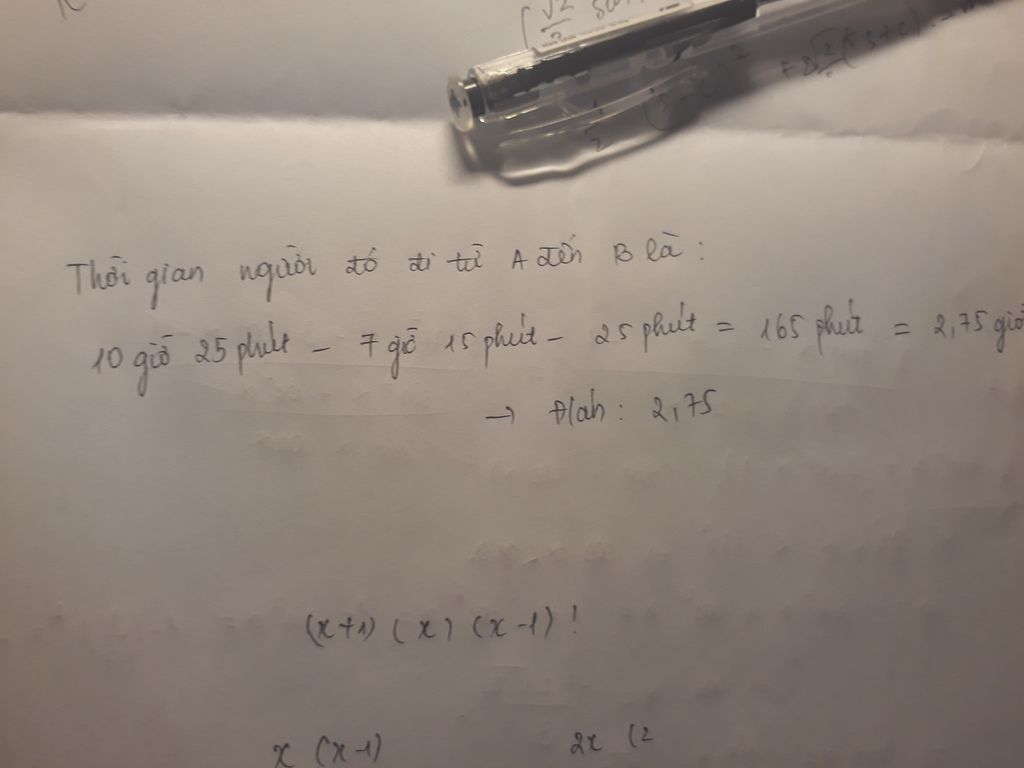 Thời gian người đó đi từ A đến B là:
10 giờ 25 phút - 7 giờ 15 phút - 25 phút = 165 phút = 2,75 giờ
→ Đ/án: 2,75
(x+1) (x) (x-1)!
x (x-1) 2x (2